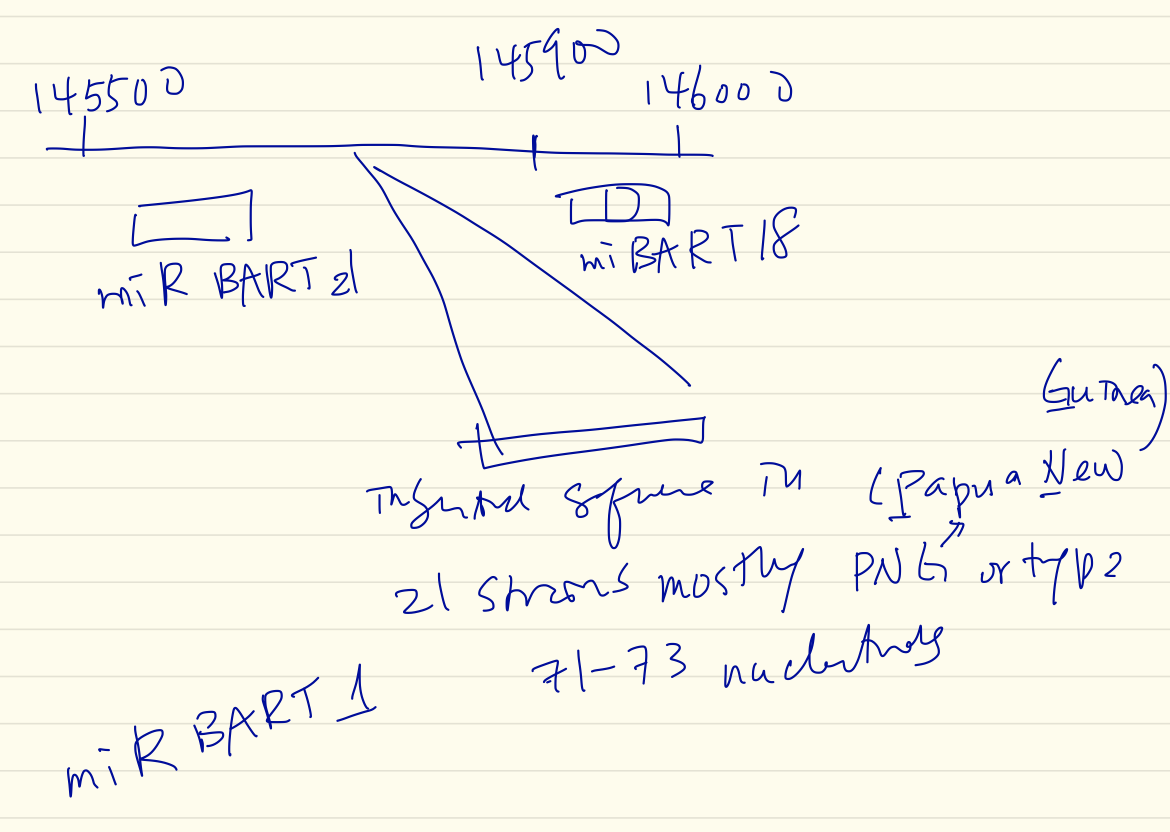 145500
145900
146000
miR BART 21
mi BART 18
(Guinea)
Inserted sequence in (Papua New
21 strains mostly PNG or typ 2
71-73 nucleotides
miR BART 1